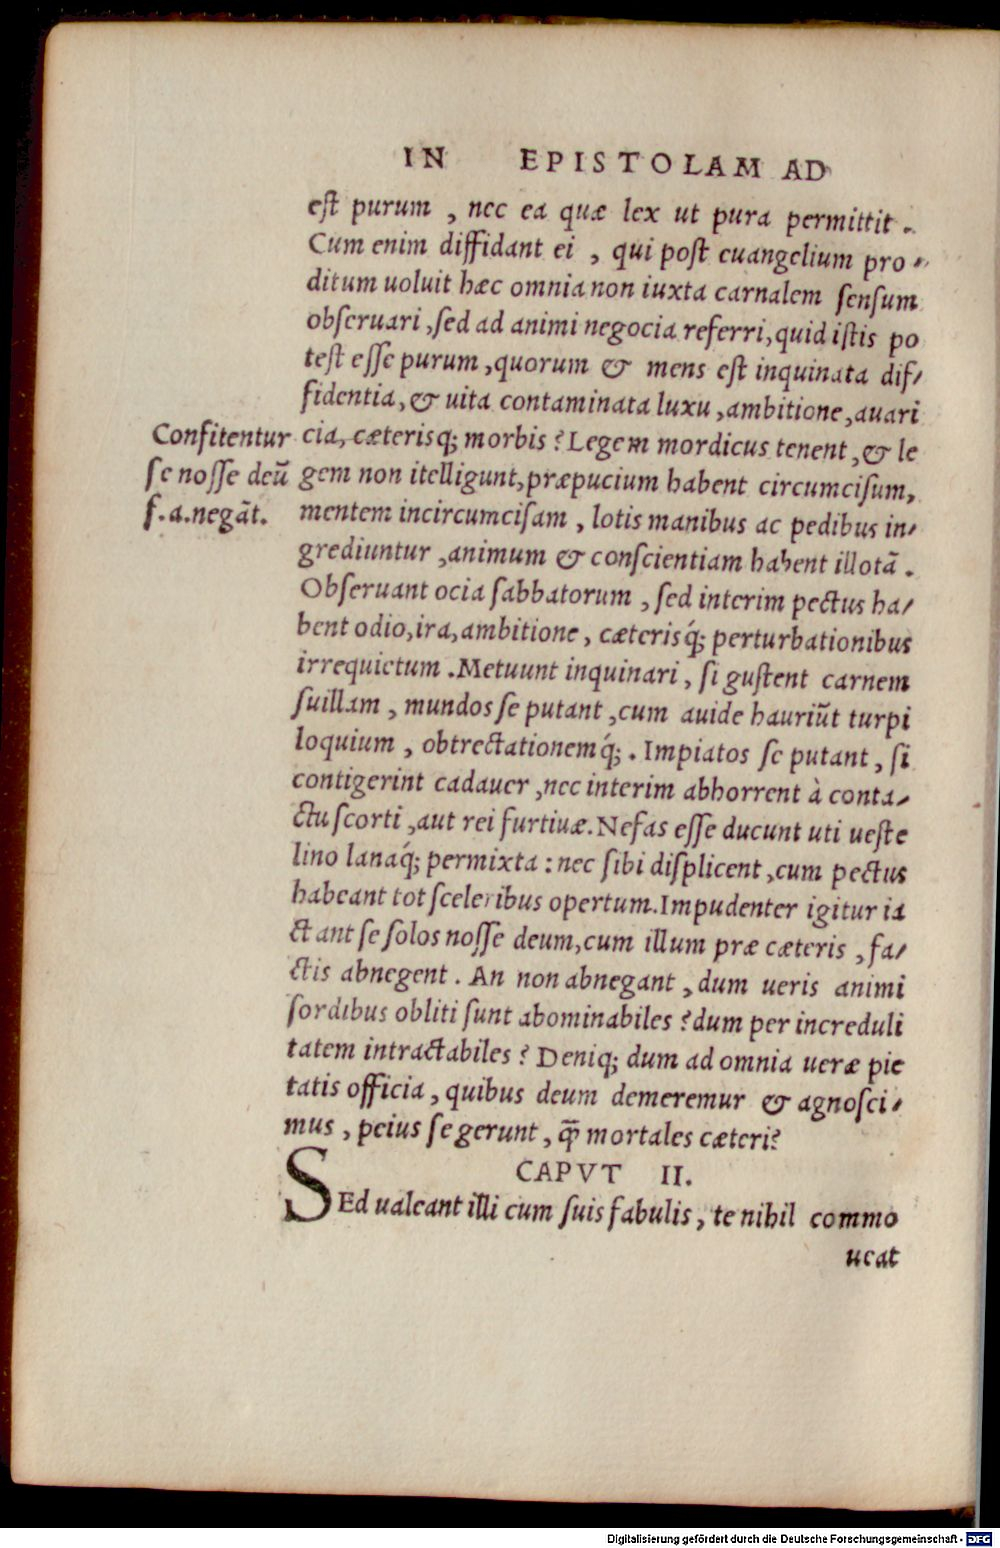 IN EPISTOLAM AD
est purum , nec ea quæ lex ut pura permittit .
Cum enim diffidant ei , qui post euangelium pro-
ditum uoluit hæc omnia non iuxta carnalem sensum
obseruari , sed ad animi negocia referri, quid istis po
test esse purum , quorum & mens est inquinata dif-
fidentia, & uita contaminata luxu , ambitione, auari
cia, cæterisq; morbis ? Legem mordicus tenent , & le
gem non itelligunt, præpucium habent circumcisum,
mentem incircumcisam , lotis manibus ac pedibus in-
grediuntur , animum & conscientiam habent illotã .
Obseruant ocia sabbatorum , sed interim pectus ha-
bent odio, ira, ambitione , cæterisq́; perturbationibus
irrequietum . Metuunt inquinari , si gustent carnem
suillam , mundos se putant , cum auide hauriũt turpi
loquium , obtrectationemq́; . Impiatos se putant , si
contigerint cadauer , nec interim abhorrent à conta-
ctu scorti , aut rei furtiuæ. Nefas esse ducunt uti ueste
lino lanaq́; permixta : nec sibi displicent , cum pectus
habeant tot sceleribus opertum. Impudenter igitur ia
ctant se solos nosse deum, cum illum præ cæteris , fa-
ctis abnegent . An non abnegant , dum ueris animi
sordibus obliti sunt abominabiles ? dum per increduli
tatem intractabiles ? Deniq; dum ad omnia ueræ pie
tatis officia , quibus deum demeremur & agnosci-
mus , peius se gerunt , q̃ mortales cæteri?
Confitentur
se nosse deũ
f.a.negãt.
CAPVT II.
SEd ualeant illi cum suis fabulis , te nihil commo
ueat
Digitalisierung gefördert durch die Deutsche Forschungsgemeinschaft - DFG